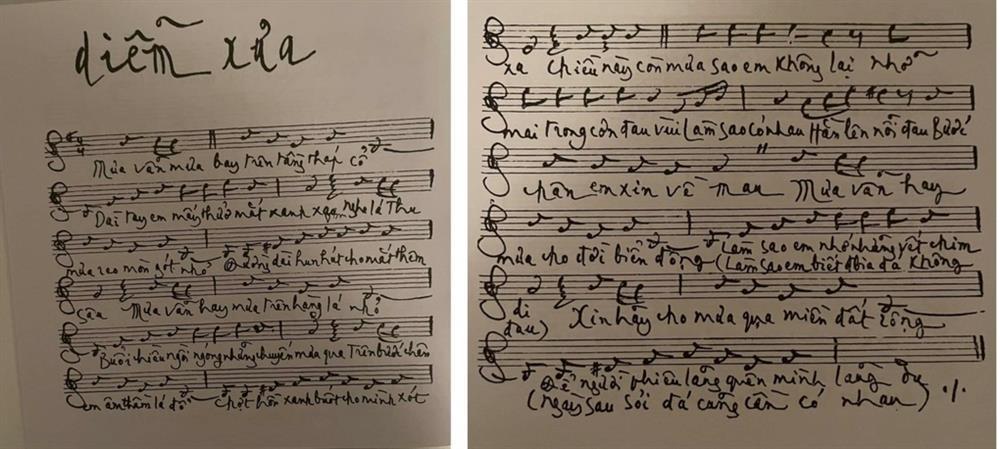 diễm xưa
Mưa vẫn mưa bay trên tầng tháp cổ
Dài tay em mấy thuở mắt xanh xao nghe lá thu
mưa reo mòn gót nhỏ Đường dài hun hút cho mắt thêm
sâu Mưa vẫn hay mưa trên hàng lá nhỏ
Buổi chiều ngồi ngóng những chuyến mưa qua Trên bước chân
em âm thầm lá đổ Chợt hồn xanh buốt cho mình xót
xa Chiều này còn mưa sao em không lại nhỡ
mai trong cơn đau vùi Làm sao có nhau Hằn lên nỗi đau Bước
chân em xin về mau Mưa vẫn hay
mưa cho đời biển động Làm sao em nhớ những vết chim
(Làm sao em biết bia đá không
di Xin hãy cho mưa qua miền đất rộng
đau)
Để người phiêu lãng quên mình lãng du
(ngày sau sỏi đá cũng cần có nhau)